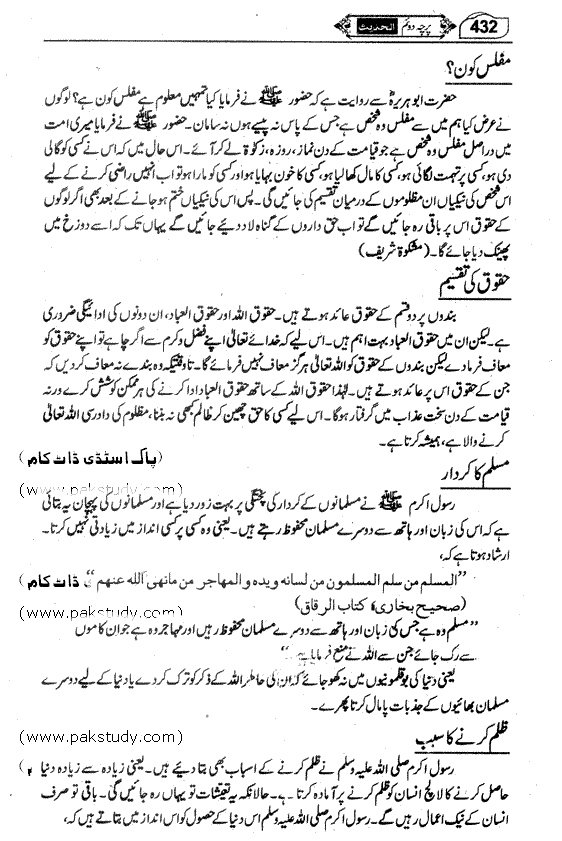 432
پرچہ دوئم
الحدیث
مفلس کون؟
حضرت ابوہریرہؓ سے روایت ہے کہ حضور ﷺ نے فرمایا کیا تمہیں معلوم ہے مفلس کون ہے؟ لوگوں
نے عرض کیا ہم میں سے مفلس وہ شخص ہے جس کے پاس نہ پیسے ہوں نہ سامان۔ حضور ﷺ نے فرمایا میری امت
میں دراصل مفلس وہ شخص ہے جو قیامت کے دن نماز، روزہ، زکوٰۃ لے کر آئے۔ اس حال میں کہ اس نے کسی کو گالی
دی ہو، کسی پر تہمت لگائی ہو، کسی کا مال کھالیا ہو، کسی کا خون بہایا ہو اور کسی کو مارا ہو تو اب انہیں راضی کرنے کے لیے
اس شخص کی نیکیاں ان مظلوموں کے درمیان تقسیم کی جائیں گی۔ پس اس کی نیکیاں ختم ہو جانے کے بعد بھی اگر لوگوں
کے حقوق اس پر باقی رہ جائیں گے تو اب حق داروں کے گناہ لاد دئیے جائیں گے یہاں تک کہ اسے دوزخ میں
پھینک دیا جائے گا۔ (مشکوٰۃ شریف)
حقوق کی تقسیم
بندوں پر دو قسم کے حقوق عائد ہوتے ہیں۔ حقوق اللہ اور حقوق العباد، ان دونوں کی ادائیگی ضروری
ہے۔ لیکن ان میں حقوق العباد بہت اہم ہیں۔ اس لیے کہ خدائے تعالیٰ اپنے فضل و کرم سے اگر چاہے تو اپنے حقوق کو
معاف فرمادے لیکن بندوں کے حقوق کو اللہ تعالیٰ ہرگز معاف نہیں فرمائے گا۔ تاوقتیکہ وہ بندے نہ معاف کردیں کہ
جن کے حقوق اس پر عائد ہوتے ہیں۔ لہٰذا حقوق اللہ کے ساتھ حقوق العباد ادا کرنے کی ہر ممکن کوشش کرے ورنہ
قیامت کے دن سخت عذاب میں گرفتار ہوگا۔ اس لیے کسی کا حق چھین کر ظالم کبھی نہ بننا، مظلوم کی داد رسی اللہ تعالیٰ
کرنے والا ہے، ہمیشہ کرتا ہے۔
(پاک اسٹڈی ڈاٹ کام)
مسلم کا کردار
(www.pakstudy.com)
رسول اکرم ﷺ نے مسلمانوں کے کردار کی پختگی پر بہت زور دیا ہے اور مسلمانوں کی پہچان یہ بتائی
ہے کہ اس کی زبان اور ہاتھ سے دوسرے مسلمان محفوظ رہتے ہیں۔ یعنی وہ کسی پر کسی انداز میں زیادتی نہیں کرتا۔
ارشاد ہوتا ہے کہ،
”المسلم من سلم المسلمون من لسانه ويده و المهاجر من مانهى الله عنهم“
ڈاٹ کام)
(صحيح بخاری، کتاب الرقاق)
(www.pakstudy.com)
”مسلم وہ ہے جس کی زبان اور ہاتھ سے دوسرے مسلمان محفوظ رہیں اور مہاجر وہ ہے جو ان کاموں
سے رک جائے جن سے اللہ نے منع فرمایا ہے۔“
یعنی دنیا کی بوقلمونیوں میں نہ کھو جائے کہ ان کی خاطر اللہ کے ذکر کو ترک کردے یا دنیا کے لیے دوسرے
مسلمان بھائیوں کے جذبات پامال کرتا پھرے۔
ظلم کرنے کا سبب
(www.pakstudy.com)
رسول اکرم صلی اللہ علیہ وسلم نے ظلم کرنے کے اسباب بھی بتا دیئے ہیں۔ یعنی زیادہ سے زیادہ دنیا
حاصل کرنے کا لالچ انسان کو ظلم کرنے پر آمادہ کرتا ہے۔ حالانکہ یہ تعیشات تو یہاں رہ جائیں گی۔ باقی تو صرف
انسان کے نیک اعمال رہیں گے۔ رسول اکرم صلی اللہ علیہ وسلم اس دنیا کے حصول کو اس انداز میں بتاتے ہیں کہ،